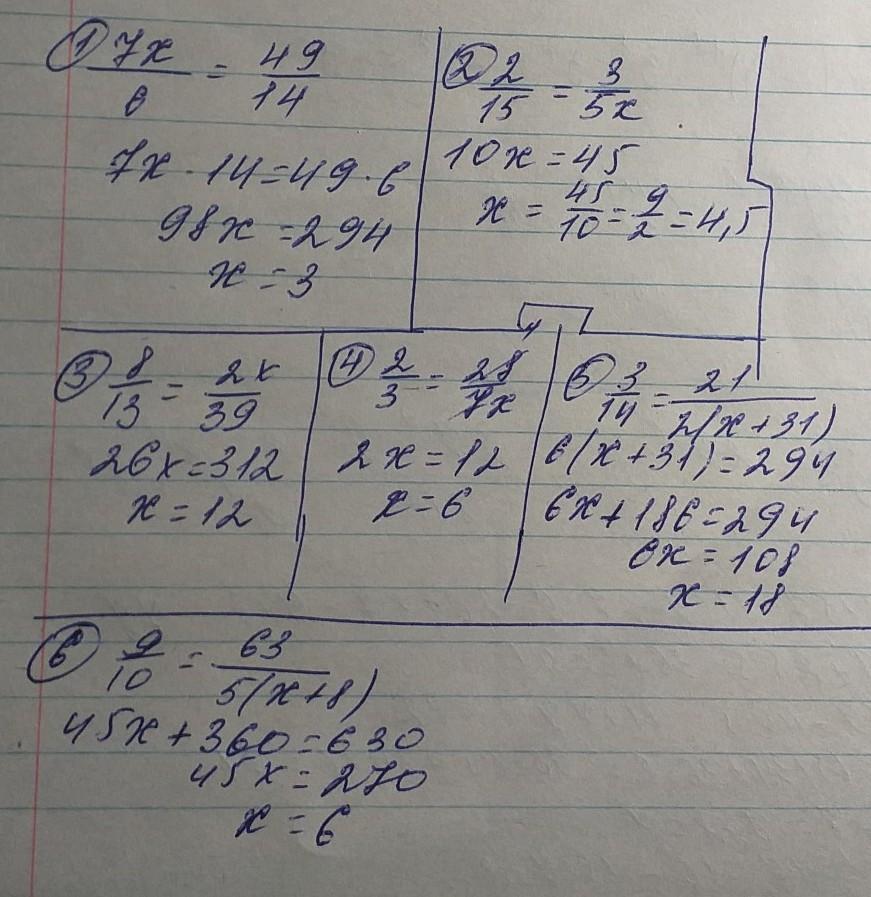 ① 7x/6 = 49/14
7x · 14 = 49 · 6
98x = 294
x = 3
② 2/15 = 3/5x
10x = 45
x = 45/10 = 9/2 = 4,5
③ 8/13 = 2x/39
26x = 312
x = 12
④ 2/3 = 28/7x
4
2x = 12
x = 6
⑤ 3/14 = 21/2(x+31)
6(x+31) = 294
6x + 186 = 294
6x = 108
x = 18
⑥ 9/10 = 63/5(x+8)
45x + 360 = 630
45x = 270
x = 6